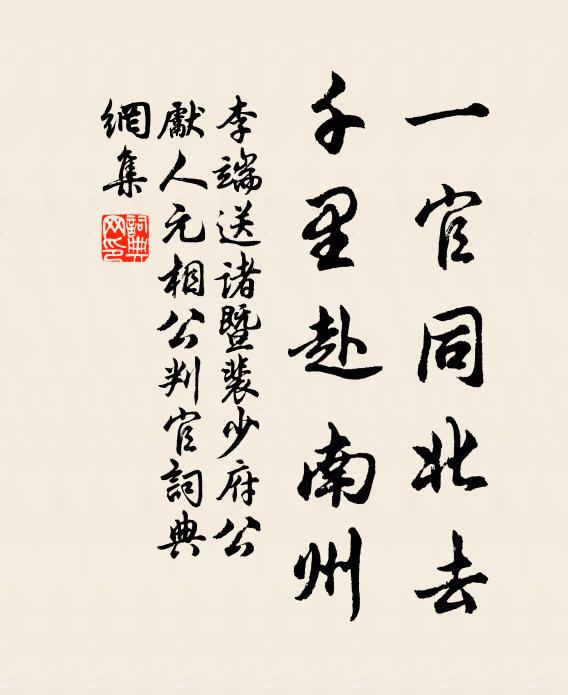 一官同北去
千里赴南州
李端送諸暨裴少府公
獻人元相公判官詞典
網集
詞典網印